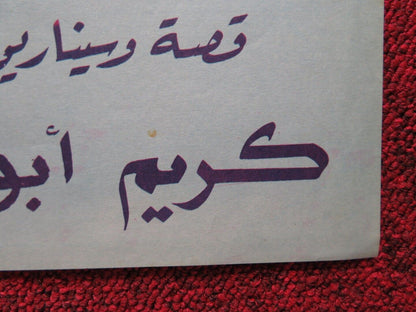 قصة وسيناريو
كريم أبو